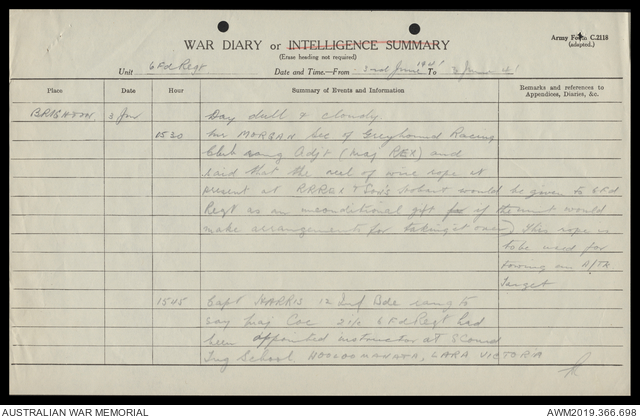 Army Form C.2118
(adapted.)
WAR DIARY or INTELLIGENCE SUMMARY
(Erase heading not required)
Unit 6 Fd Regt Date and Time—From 3rd June 1941 To 3 June 41
Place Hour Summary of Events and Information Remarks and references to Appendices, Diaries, &c.
BRIGHTON 3 Jun Day dull & cloudy
0530 Mr MORGAN Sec of Greyhound Racing
Club rang Adjt (Maj REX) and
said that the reel of wire rope at
present at & Sons Hobart would be given to 6 Fd
Regt as an unconditional gift for if the unit would
make arrangements for taking it over) This rope is
to be used for
towing an A/TK
Target
1545 Capt HARRIS 12 Ind Bde rang to
say Maj Cox 2 i/c 6 Fd Regt had
been appointed instructor at
Trg School, LARA VICTORIA
AUSTRALIAN WAR MEMORIAL AWM2019.366.698